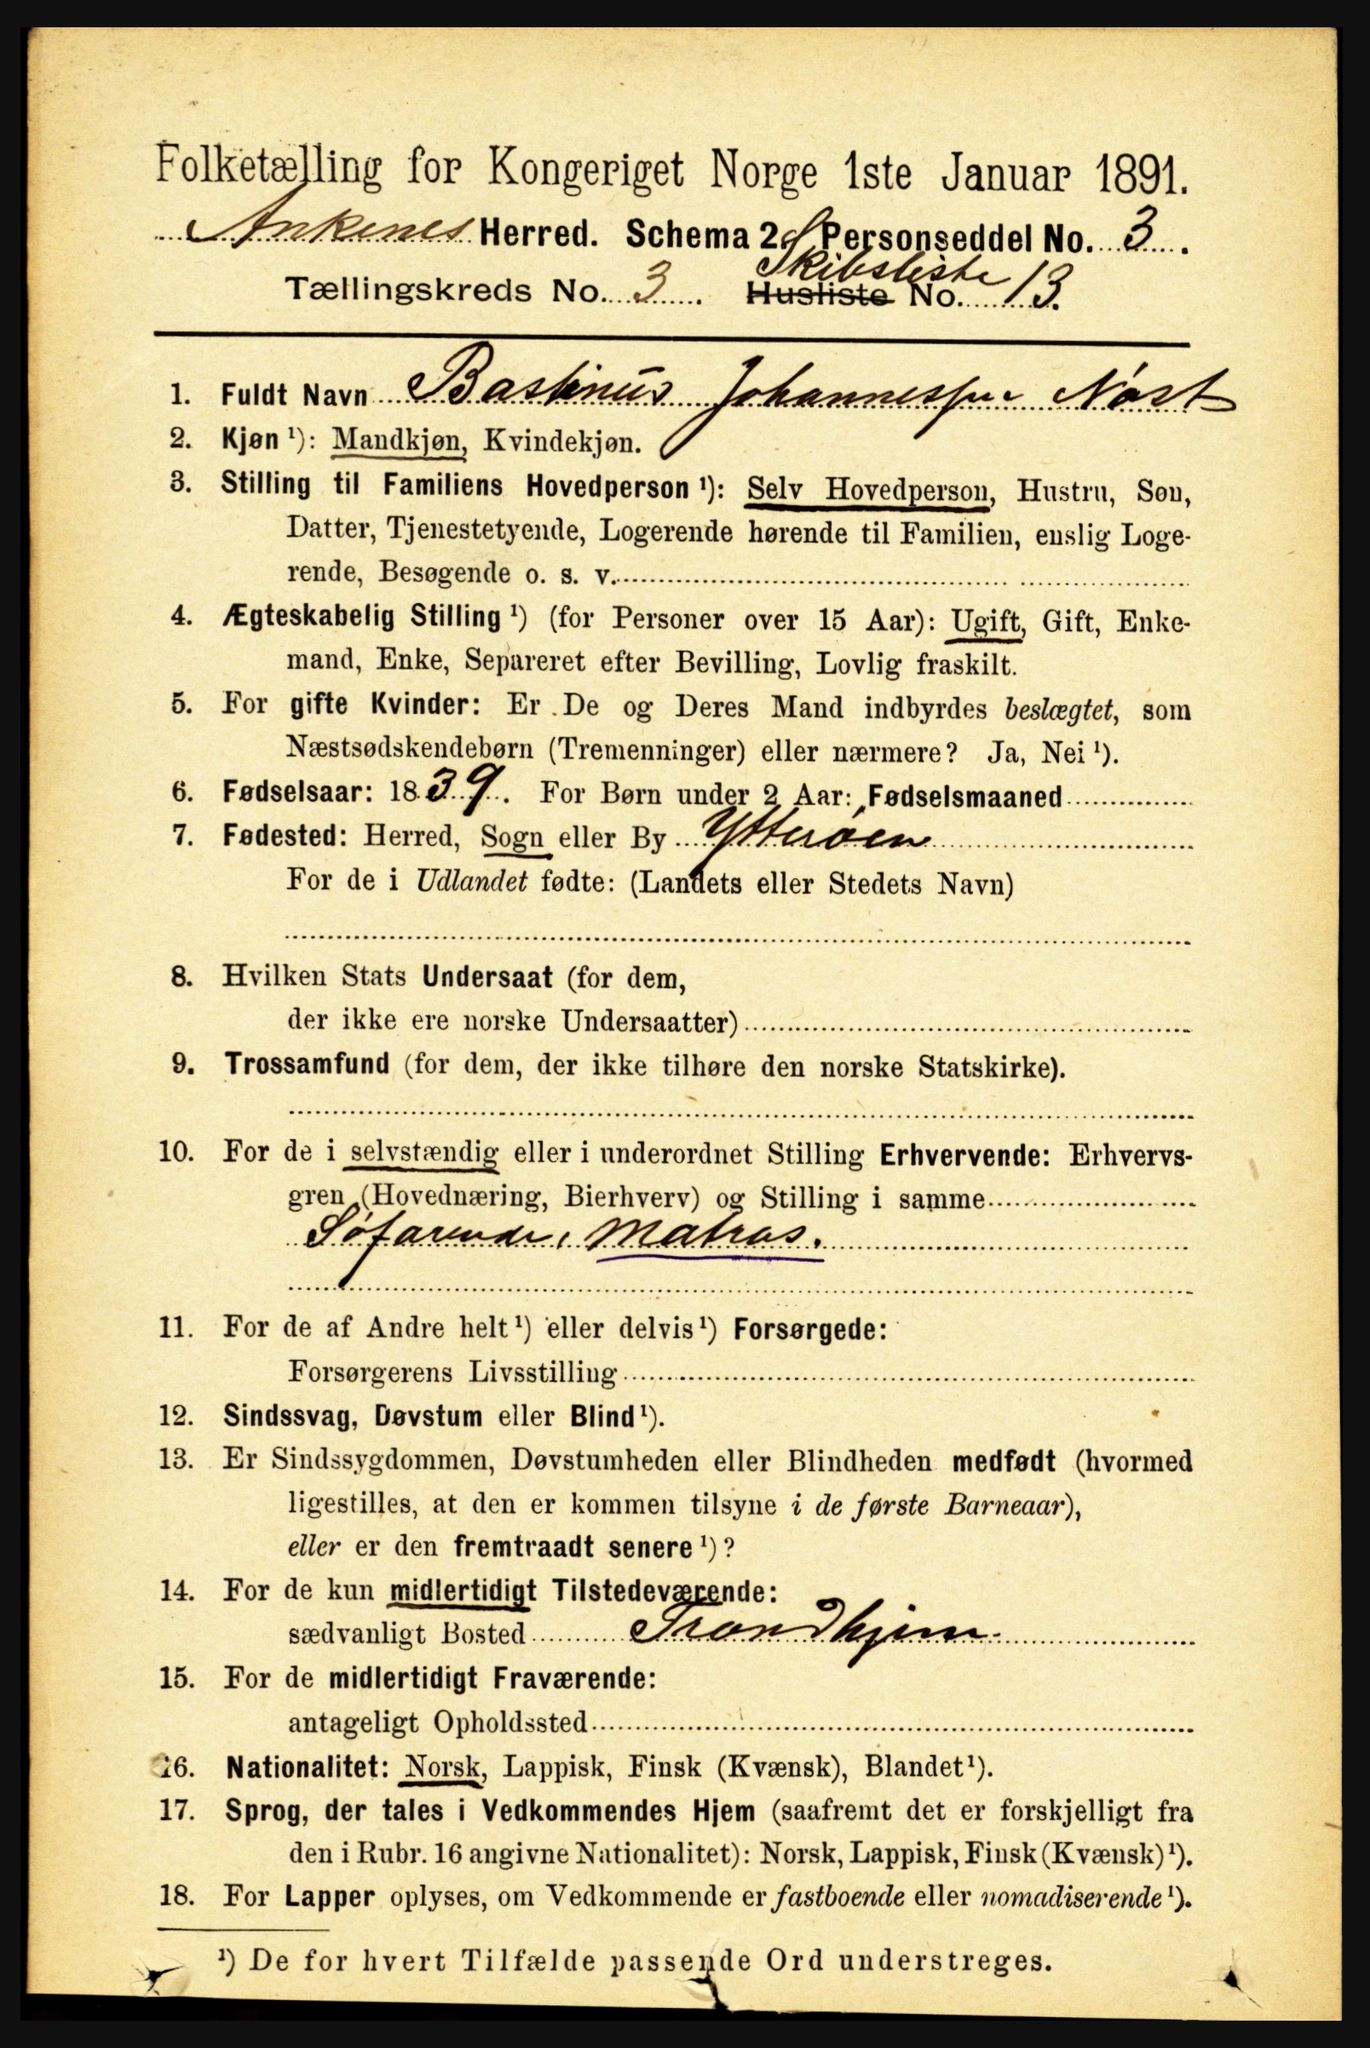 Folketælling for Kongeriget Norge 1ste Januar 1891.
Ankenes Herred. Schema 2. S Personseddel No. 3.
Tællingskreds No. 3. Husliste Skibsliste No. 13.
1. Fuldt Navn Bastinus Johannessen Nøst
2. Kjøn ¹): Mandkjøn, Kvindekjøn.
3. Stilling til Familiens Hovedperson ¹): Selv Hovedperson, Hustru, Søn,
Datter, Tjenestetyende, Logerende hørende til Familien, enslig Loge-
rende, Besøgende o. s. v.
4. Ægteskabelig Stilling ¹) (for Personer over 15 Aar): Ugift, Gift, Enke-
mand, Enke, Separeret efter Bevilling, Lovlig fraskilt.
5. For gifte Kvinder: Er De og Deres Mand indbyrdes beslægtet, som
Næstsødskendebørn (Tremenninger) eller nærmere? Ja, Nei ¹).
6. Fødselsaar: 1839. For Børn under 2 Aar: Fødselsmaaned
7. Fødested: Herred, Sogn eller By Ytterøen
For de i Udlandet fødte: (Landets eller Stedets Navn)
8. Hvilken Stats Undersaat (for dem,
der ikke ere norske Undersaatter)
9. Trossamfund (for dem, der ikke tilhøre den norske Statskirke).
10. For de i selvstændig eller i underordnet Stilling Erhvervende: Erhvervs-
gren (Hovednæring, Bierhverv) og Stilling i samme
Søfarende, Matros.
11. For de af Andre helt ¹) eller delvis ¹) Forsørgede:
Forsørgerens Livsstilling
12. Sindssvag, Døvstum eller Blind ¹).
13. Er Sindssygdommen, Døvstumheden eller Blindheden medfødt (hvormed
ligestilles, at den er kommen tilsyne i de første Barneaar),
eller er den fremtraadt senere ¹)?
14. For de kun midlertidigt Tilstedeværende:
sædvanligt Bosted Trondhjem
15. For de midlertidigt Fraværende:
antageligt Opholdssted
16. Nationalitet: Norsk, Lappisk, Finsk (Kvænsk), Blandet ¹).
17. Sprog, der tales i Vedkommendes Hjem (saafremt det er forskjelligt fra
den i Rubr. 16 angivne Nationalitet): Norsk, Lappisk, Finsk (Kvænsk) ¹).
18. For Lapper oplyses, om Vedkommende er fastboende eller nomadiserende ¹).
¹) De for hvert Tilfælde passende Ord understreges.